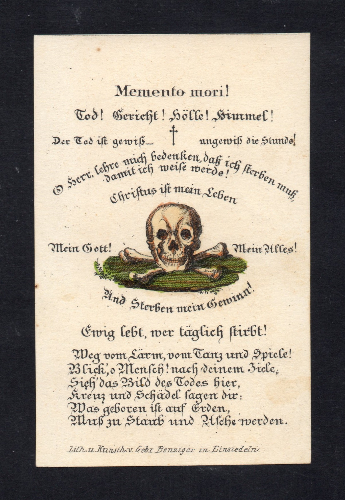 Memento mori!
Tod! Gericht! Hölle! Himmel!
Der Tod ist gewiß... ungewiß die Stunde!
O Herr, lehre mich bedenken, daß ich sterben muß,
damit ich weise werde!
Christus ist mein Leben
Mein Gott! Mein Alles!
Und Sterben mein Gewinn!
Ewig lebt, wer täglich stirbt!
Weg vom Lärm, vom Tanz und Spiele!
Blick', o Mensch! nach deinem Ziele,
Sieh' das Bild des Todes hier,
Kreuz und Schädel sagen dir:
Was geboren ist auf Erden,
Muß zu Staub und Asche werden.
Lith. u. Kunstvlv. Gebr. Benziger in Einsiedeln